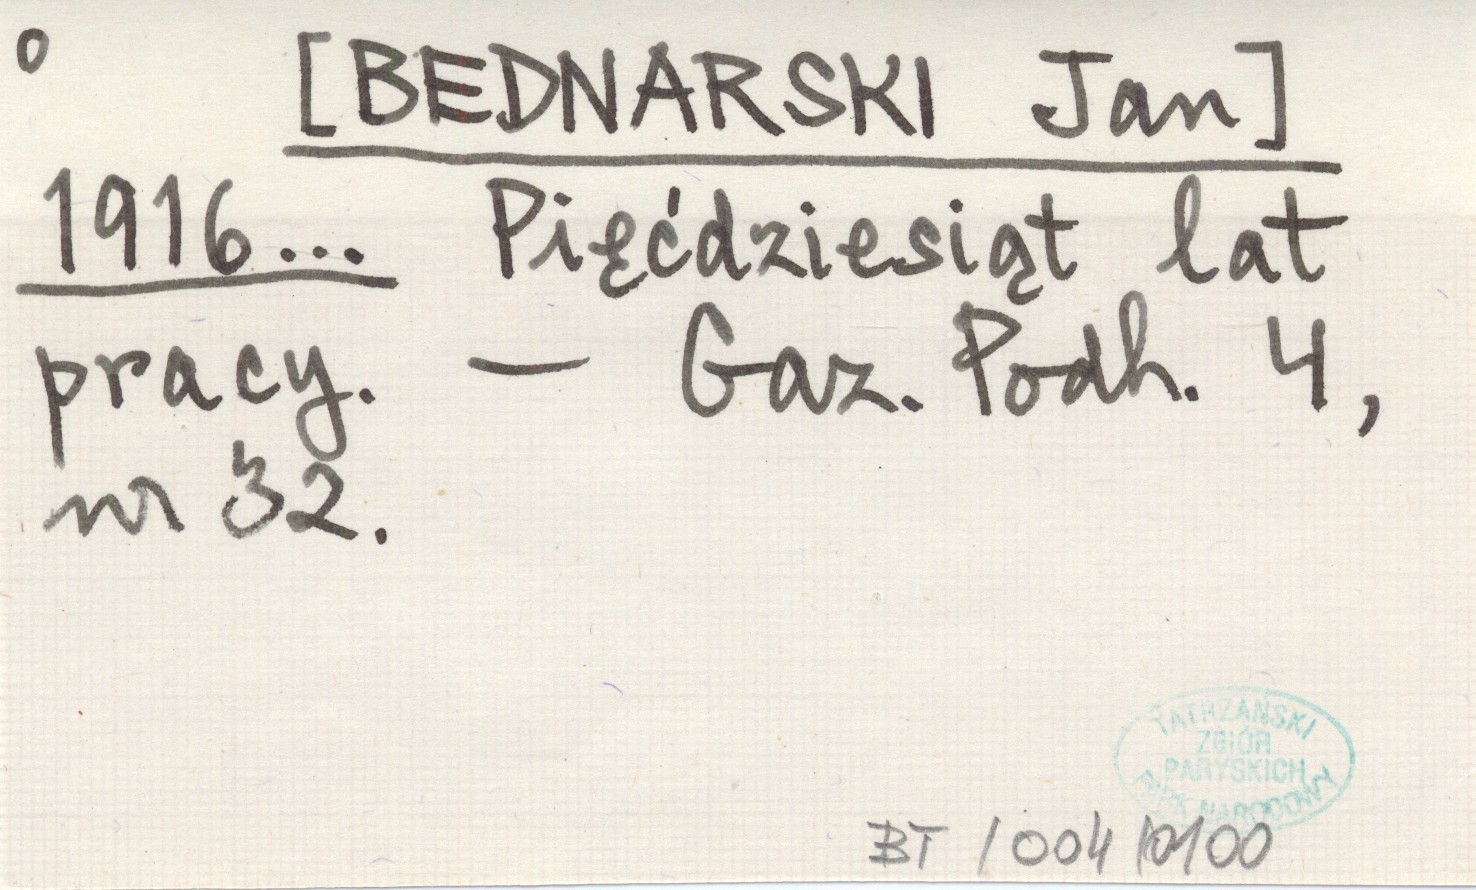 o [BEDNARSKI Jan]
1916... Pięćdziesiąt lat
pracy. — Gaz. Podh. 4,
nr 32.
TATRZAŃSKI
ZBIÓR
PARYSKICH
PARK NARODOWY
BT / 004 / 0100